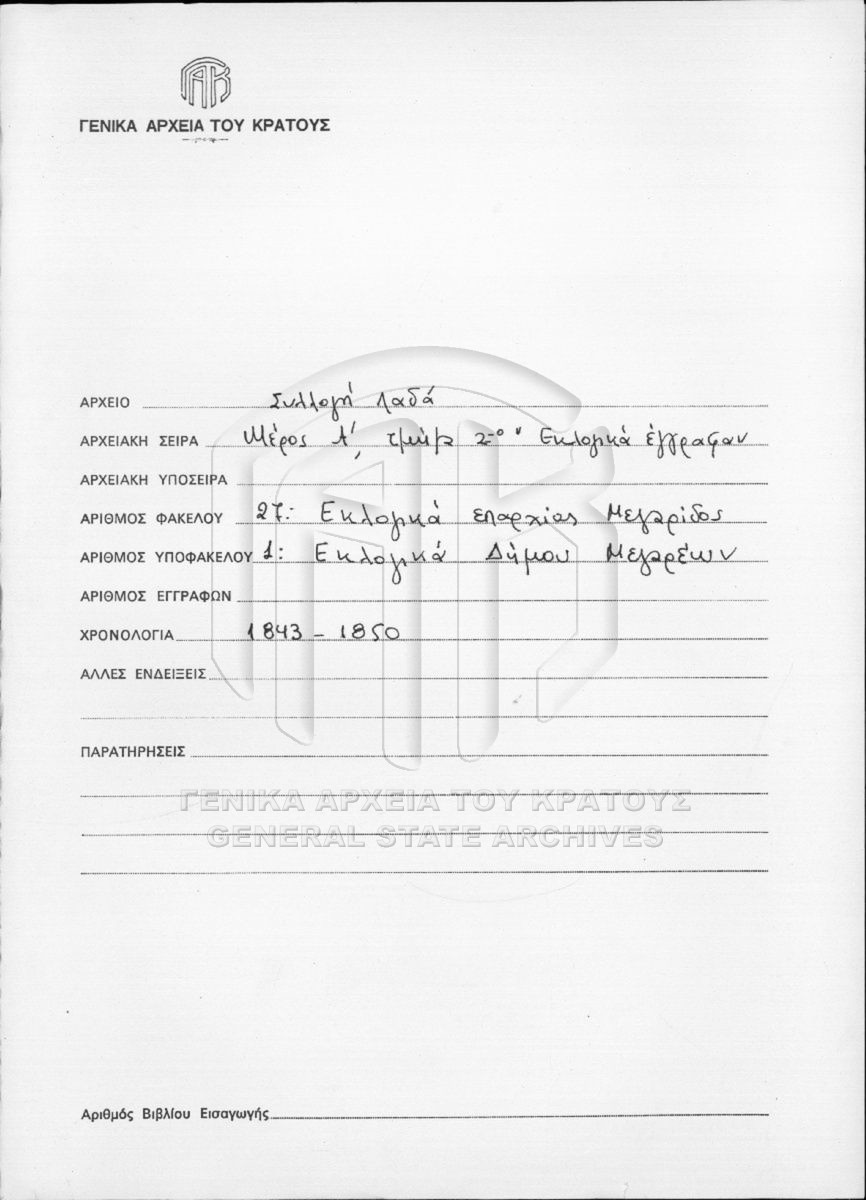 ΓΑΚ
ΓΕΝΙΚΑ ΑΡΧΕΙΑ ΤΟΥ ΚΡΑΤΟΥΣ
ΑΡΧΕΙΟ Συλλογή Λαδά
ΑΡΧΕΙΑΚΗ ΣΕΙΡΑ Μέρος Α', τμήμα 2ον Εκλογικά έγγραφαν
ΑΡΧΕΙΑΚΗ ΥΠΟΣΕΙΡΑ
ΑΡΙΘΜΟΣ ΦΑΚΕΛΟΥ 27: Εκλογικά επαρχίας Μεγαρίδος
ΑΡΙΘΜΟΣ ΥΠΟΦΑΚΕΛΟΥ 1: Εκλογικά Δήμου Μεγαρέων
ΑΡΙΘΜΟΣ ΕΓΓΡΑΦΩΝ
ΧΡΟΝΟΛΟΓΙΑ 1843 - 1850
ΑΛΛΕΣ ΕΝΔΕΙΞΕΙΣ
ΠΑΡΑΤΗΡΗΣΕΙΣ
ΓΕΝΙΚΑ ΑΡΧΕΙΑ ΤΟΥ ΚΡΑΤΟΥΣ
GENERAL STATE ARCHIVES
Αριθμός Βιβλίου Εισαγωγής